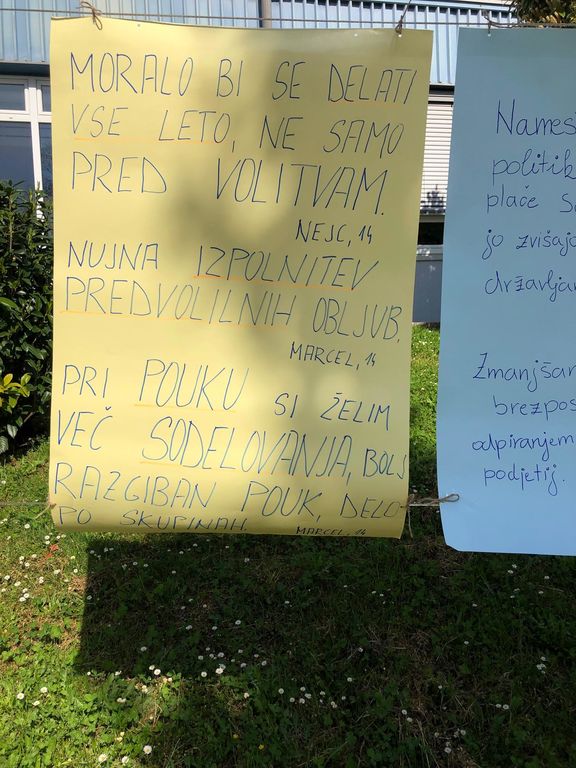 MORALO BI SE DELATI
VSE LETO, NE SAMO
PRED VOLITVAM.
NEJC, 14
NUJNA IZPOLNITEV
PREDVOLILNIH OBLJUB.
MARCEL, 14
PRI POUKU SI ŽELIM
VEČ SODELOVANJA, BOLJ
RAZGIBAN POUK, DELO
PO SKUPINAH.
MARCEL, 14
Names
politik
plače so
jo zvišajo
državljan
Zmanjšan
brezpos
odpiranjem
podjetij.